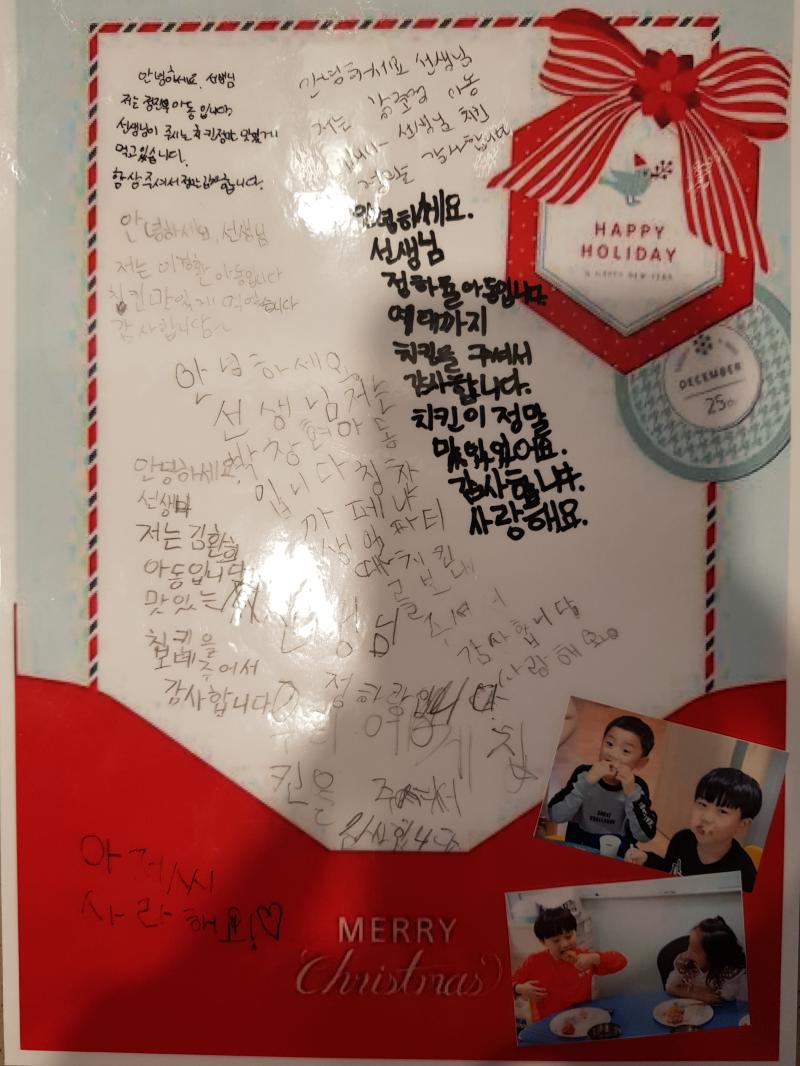 안녕하세요. 선생님
저는 정진욱 아동 입니다.
선생님이 주시는 치킨 정말 맛있게
먹고있습니다.
항상 주셔서 정말 감사합니다.
안녕하세요 선생님
저는 아동
선생님 치킨
정말 감사합니다
안녕하세요. 선생님
저는 이경환 아동입니다
치킨 맛있게 먹었습니다
감사합니다~
안녕하세요.
선생님
정하돌 아동입니다.
여태까지
치킨을 주셔서
감사합니다.
치킨이 정말
맛있있어요.
감사합니다.
사랑해요.
안녕하세요
선생님저는
아동
입니다
때 치킨
감사합니다
사랑해요
안녕하세요.
선생님
저는 김환희
아동입니다
맛있는
치킨을
보내주어서
감사합니다
선생님
정하랑입니다
우리 에게 치
킨을 주셔서
감사합니다
아저씨
사랑해요!♡
HAPPY
HOLIDAY
& HAPPY NEW YEAR
DECEMBER
25th
MERRY
Christmas